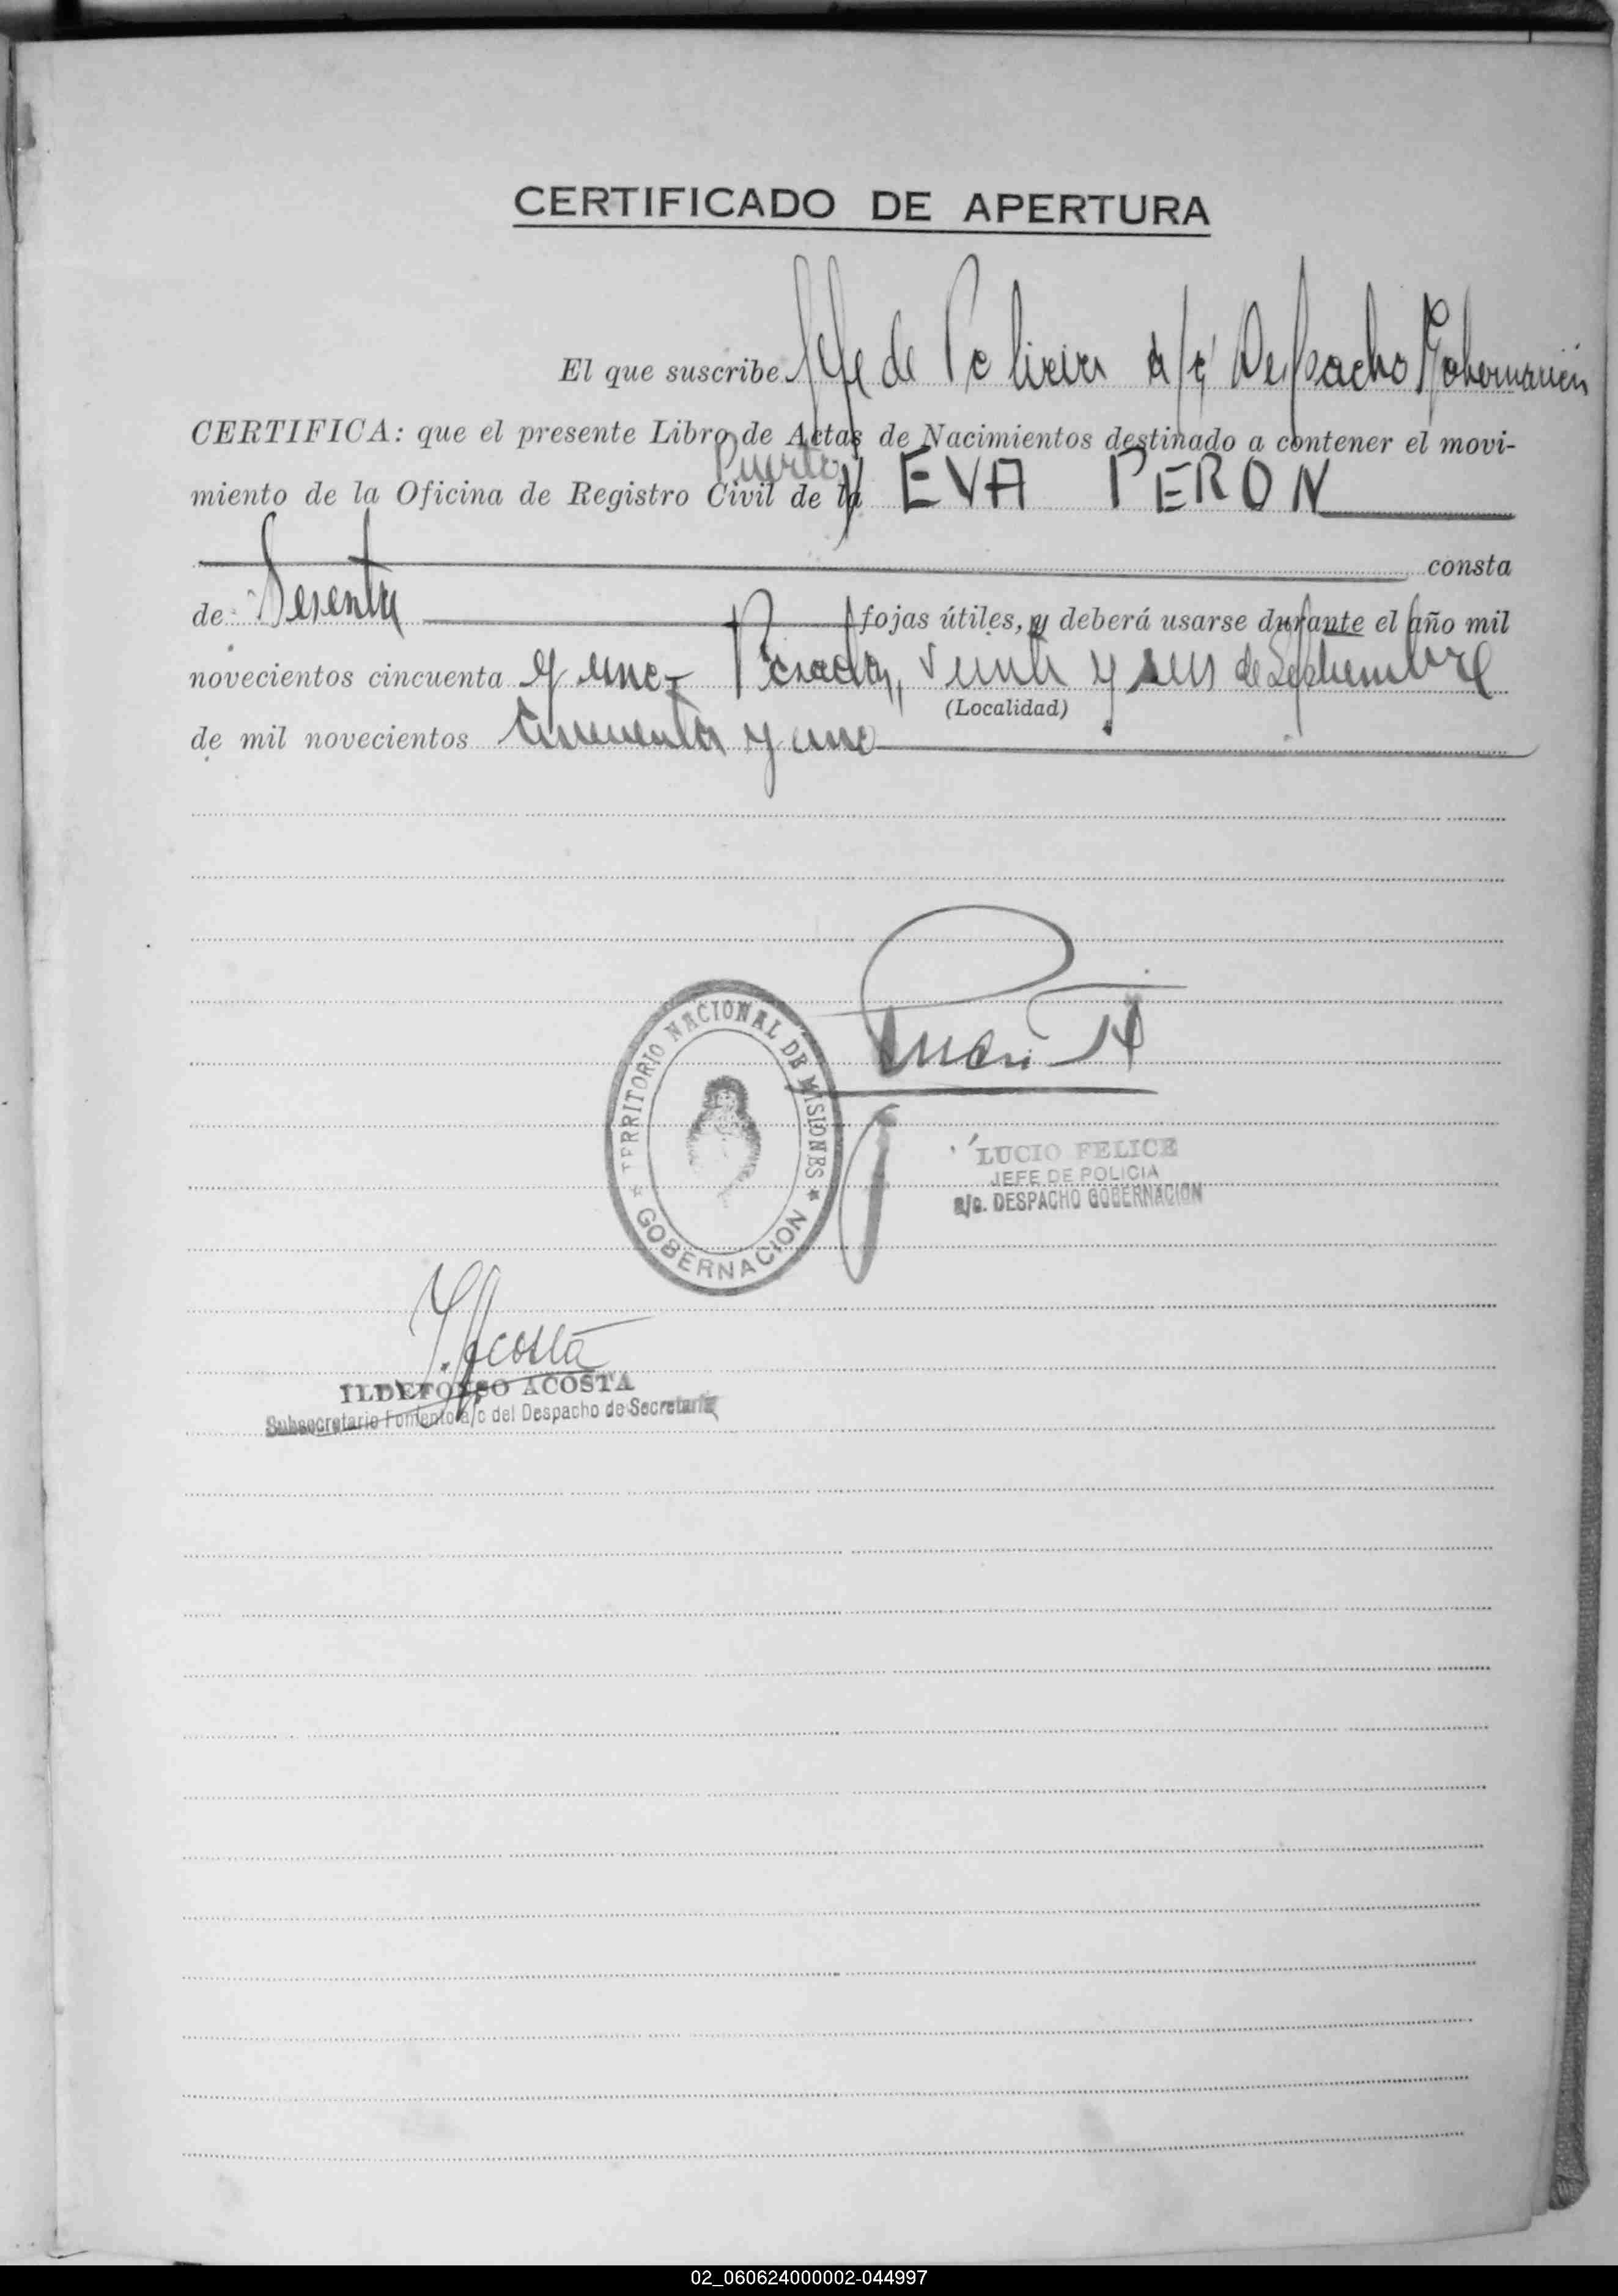 CERTIFICADO DE APERTURA
El que suscribe Jefe de Policia a/c Despacho Gobernación
CERTIFICA: que el presente Libro de Actas de Nacimientos destinado a contener el movi-
Puerto
miento de la Oficina de Registro Civil de la EVA PERON
consta
de Sesenta fojas útiles, y deberá usarse durante el año mil
novecientos cincuenta y uno- Posadas, veinte y seis de Septiembre
(Localidad)
de mil novecientos cincuenta y uno
TERRITORIO NACIONAL DE MISIONES
GOBERNACION
LUCIO FELICE
JEFE DE POLICIA
a/c. DESPACHO GOBERNACION
I. Acosta
ILDEFONSO ACOSTA
Subsecretario Fomento a/c del Despacho de Secretaría
02_060624000002-044997